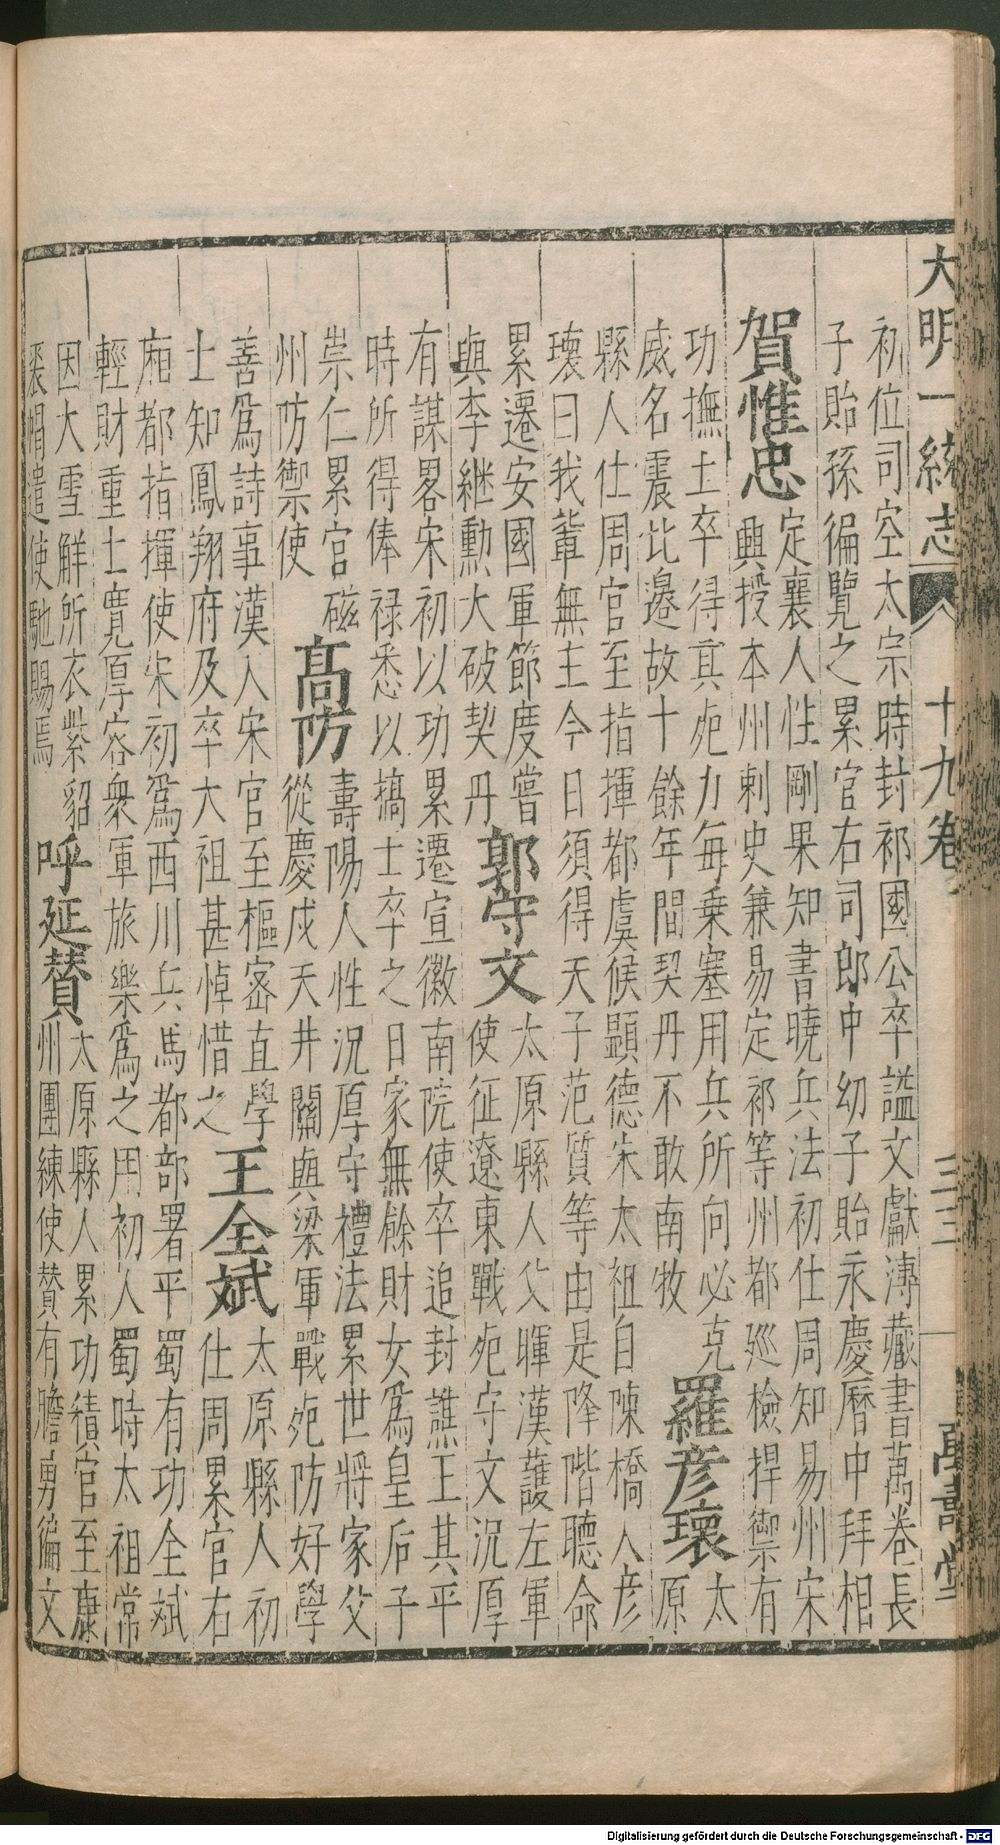 大明一統志 十九卷 三三 萬壽堂
初位司空太宗時封祁國公卒謚文獻漙藏書萬卷長
子貽孫徧覽之累官右司郎中幼子貽永慶曆中拜相
賀惟忠
定襄人性剛果知書曉兵法初仕周知易州宋
興授本州刺史兼易定祁等州都巡檢捍禦有
功撫士卒得其死力每乗塞用兵所向必克
威名震北邊故十餘年間契丹不敢南牧
羅彦瓌
太
原
縣人仕周官至指揮都虞候顯德末太祖自陳橋入彦
瓌曰我軰無主今日須得天子范質等由是降階聽命
累遷安國軍節度嘗
與李継勳大破契丹
郭守文
太原縣人父暉漢護左軍
使征遼東戰死守文沉厚
有謀畧宋初以功累遷宣徽南院使卒追封譙王其平
時所得俸禄悉以犒士卒之日家無餘財女為皇后子
崇仁累官磁
州防禦使
髙防
壽陽人性況厚守禮法累世將家父
從慶戍天井關與梁軍戰死防好學
善爲詩事漢入宋官至樞宻直學
士知鳳翔府及卒大祖甚悼惜之
王全斌
太原縣人初
仕周累官右
廂都指揮使宋初爲西川兵馬都部署平蜀有功全斌
輕財重士寛厚容衆軍旅樂爲之用初人蜀時太祖常
因大雪解所衣紫貂
裘帽遣使馳賜焉
呼延賛
太原縣人累功積官至康
州團練使賛有膽勇徧文
Digitalisierung gefördert durch die Deutsche Forschungsgemeinschaft - DFG